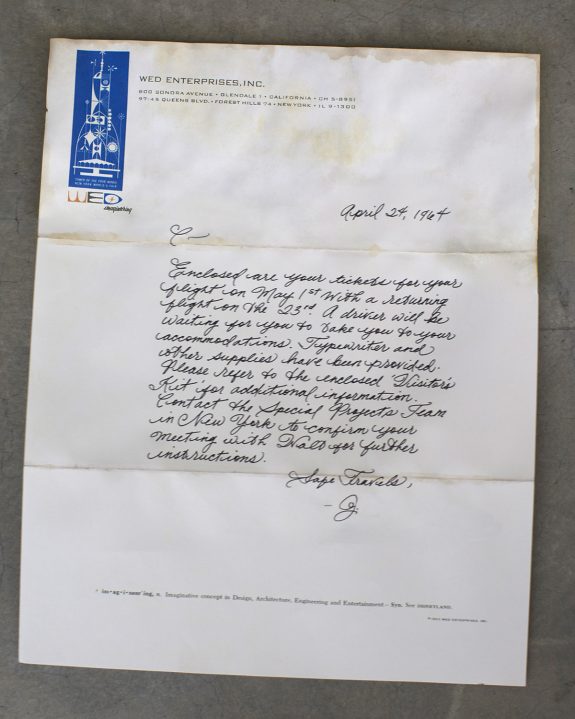 WED ENTERPRISES, INC.
800 SONORA AVENUE • GLENDALE 1 • CALIFORNIA • CH 5-8951
97-45 QUEENS BLVD. • FOREST HILLS 74 • NEW YORK • IL 9-1300
TOWER OF THE FOUR WINDS
NEW YORK WORLD'S FAIR
WED
imagineering
April 24, 1964
C-
Enclosed are your tickets for your
flight on May 1st with a returning
flight on the 23rd. A driver will be
waiting for you to take you to your
accommodations. Typewriter and
other supplies have been provided.
Please refer to the enclosed 'Visitor's
Kit' for additional information.
Contact the Special Projects Team
in New York to confirm your
meeting with Walt for further
instructions.
Safe Travels,
- G.
* im•ag•i•neer'ing, n. Imaginative concept in Design, Architecture, Engineering and Entertainment – Syn. See DISNEYLAND.
WED ENTERPRISES, INC.